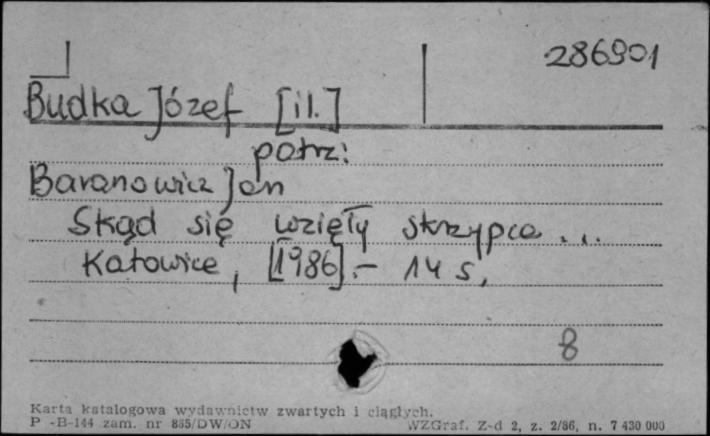 286901
Budka Józef [il.]
patrz:
Baranowicz Jan
Skąd się wzięły skrzypce...
Katowice, [1986].- 14 s.
8
Karta katalogowa wydawnictw zwartych i ciągłych.
P -B-144 zam. nr 885/DW/ON WZGraf. Z-d 2, z. 2/86, n. 7 430 000